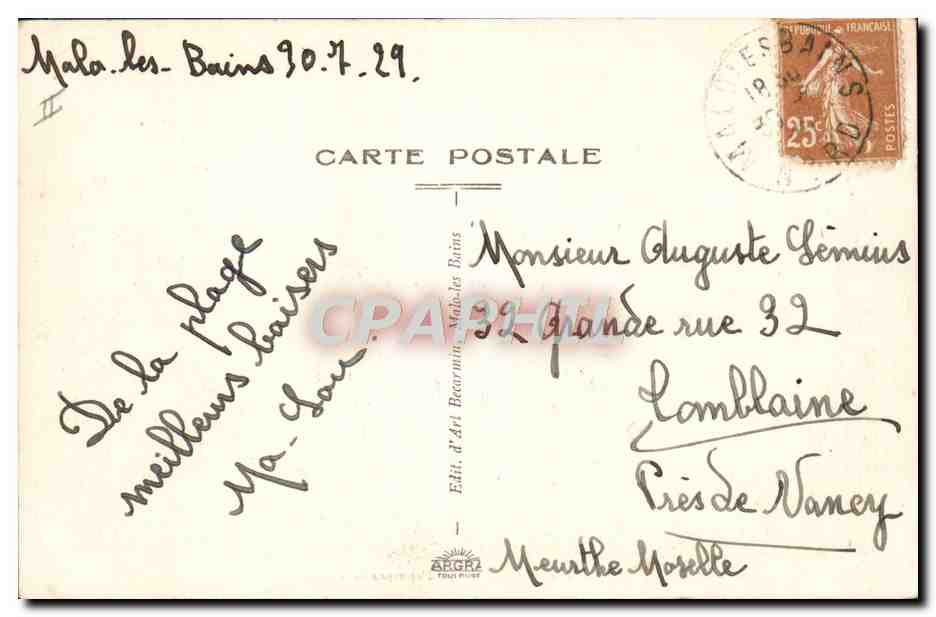 Malo-les-Bains 30.7.29.
II
RÉPUBLIQUE FRANÇAISE
25c
POSTES
MALO LES BAINS
NORD
CARTE POSTALE
De la plage
meilleurs baisers
Ma-Lou.
Edit. d'Art Becarmin, Malo-les-Bains
Monsieur Auguste Lémius
32 Grande rue 32
Tomblaine
Près de Nancy
Meurthe Moselle
CPAPHIL